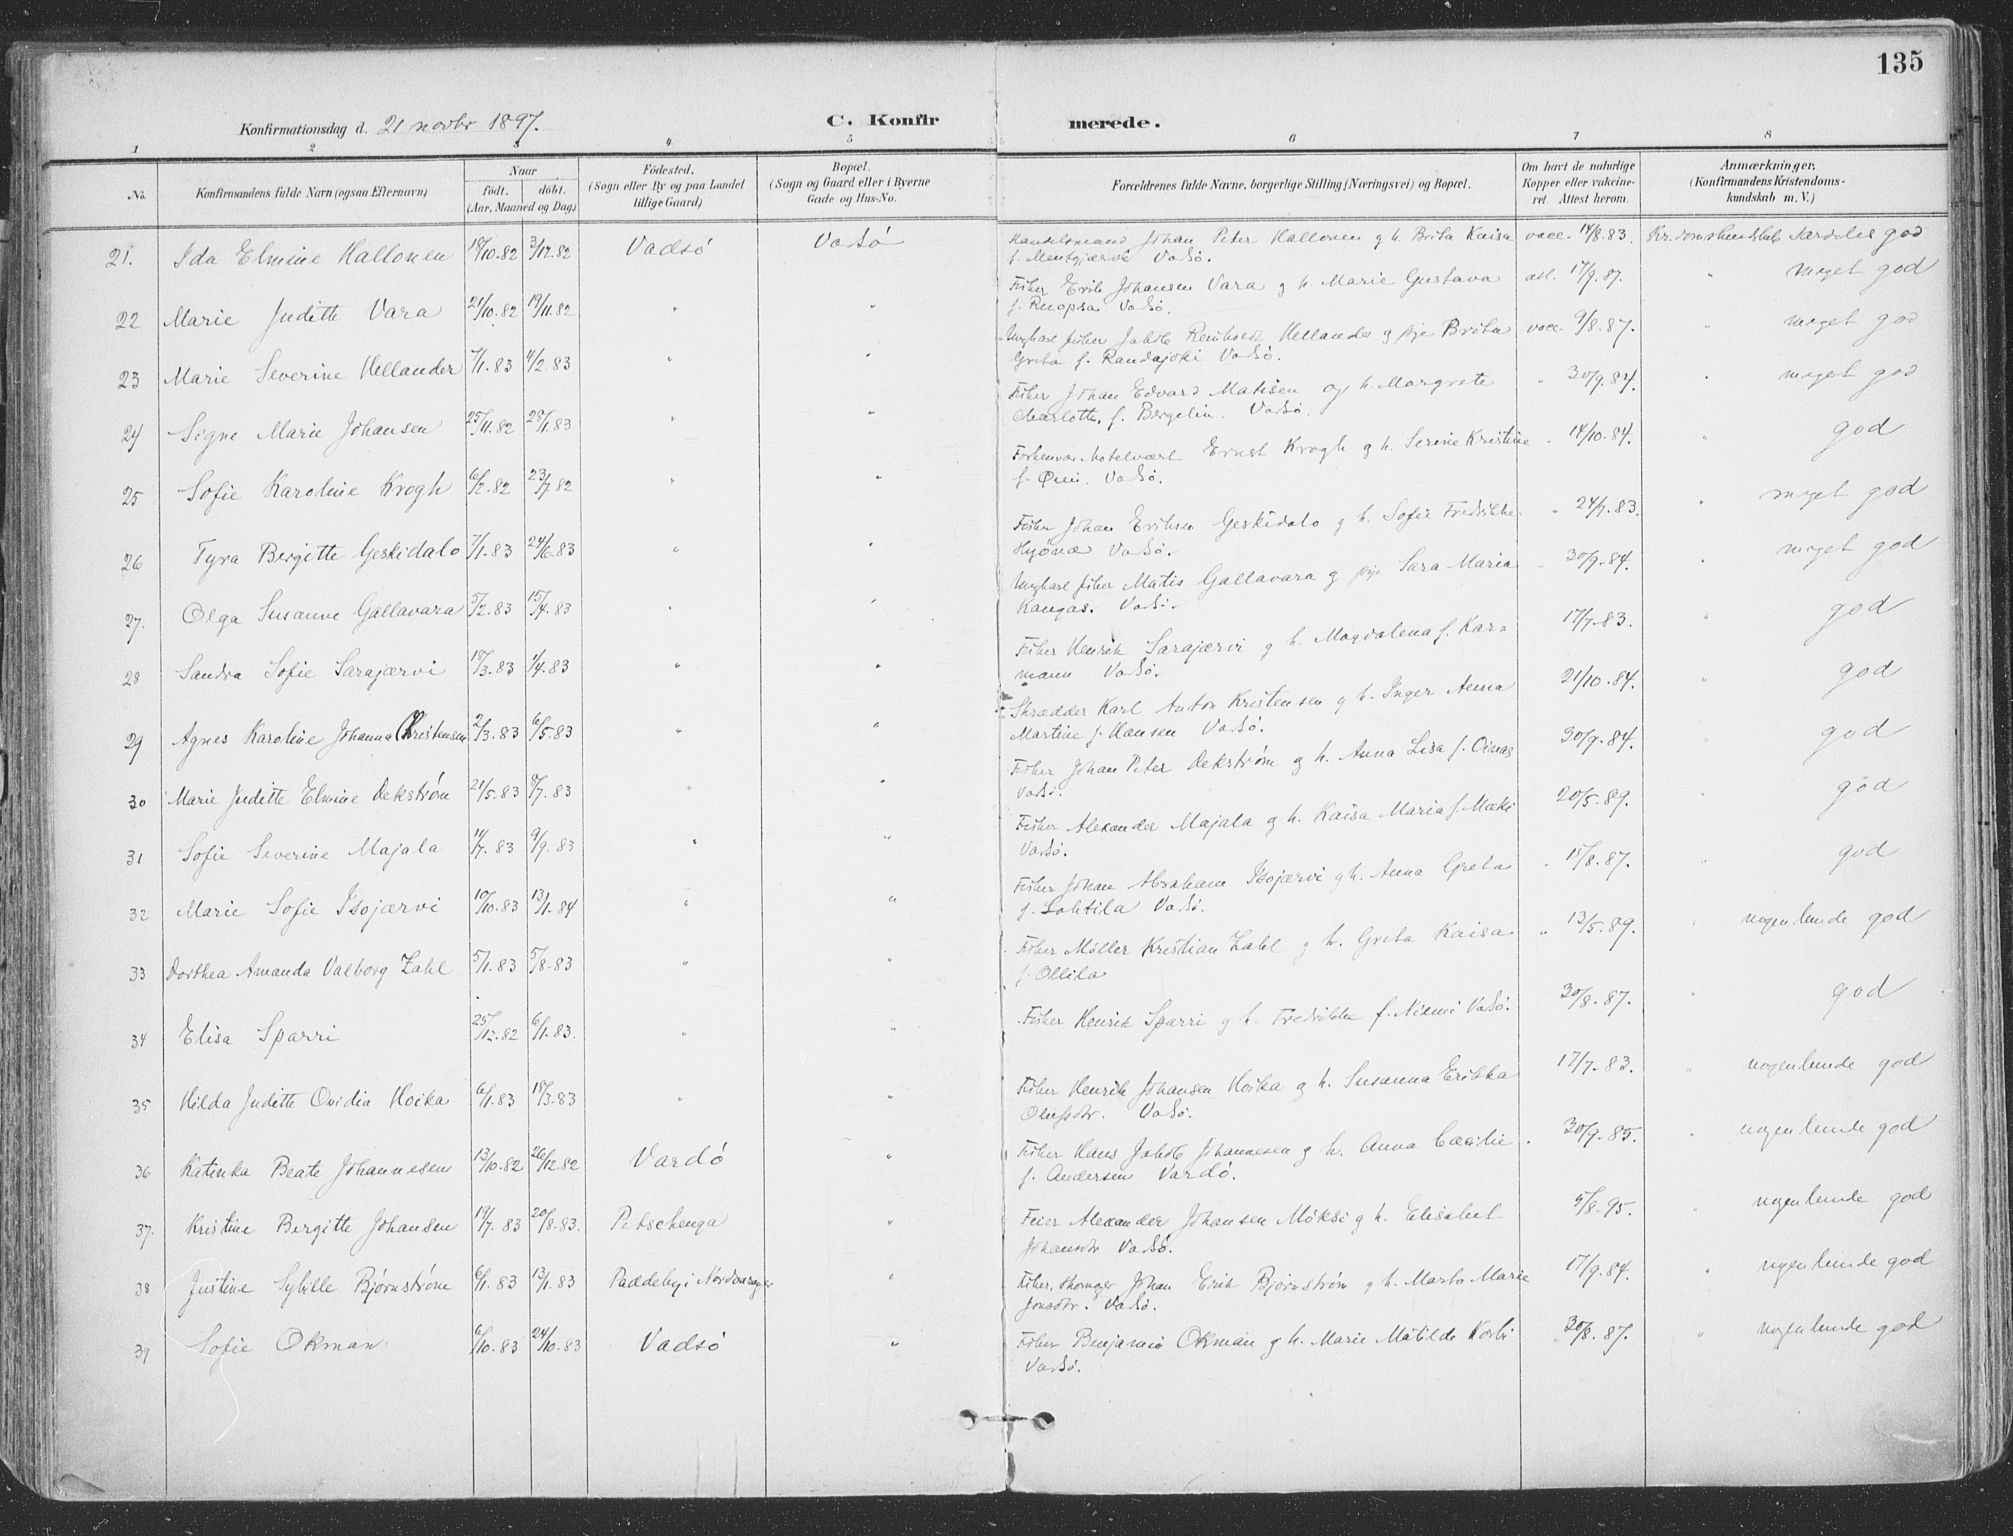 135
Konfirmationsdag d. 21 novbr 1897.
C. Konfirmerede.
1 2 3 4 5 6 7 8
No. Konfirmandens fulde Navn (ogsaa Efternavn) Naar født. døbt. (Aar, Maaned og Dag) Fødested. (Sogn eller By og paa Landet tillige Gaard) Bopæl. (Sogn og Gaard eller i Byerne Gade og Hus-No. Forældrenes fulde Navne, borgerlige Stilling (Næringsvei) og Bopæl. Om havt de naturlige Kopper eller vakcineret. Attest herom. Anmærkninger, (Konfirmandens Kristendomskundskab m. V.)
21. Ida Elmine Hallonen 18/10.82 3/12.82 Vadsö Vadsö Handelsmand Johan Peter Hallonen g h. Brita Kaisa vacc. 14/8.83. Kr.domskundskab særdeles god
f. Mentyjærvi Vadsö.
22 Marie Judith Vara 21/10.82 19/11.82 " " Fisker Erik Johansen Vara g h. Marie Gustava att. 17/9.87. " meget god
f. Ruopsa Vadsö.
23 Marie Severine Hellander 7/1.83 4/2.83 " " Ungkarl fisker Jakob Reinholdt Hellander g pige Brita vacc. 9/8.87. " meget god
Greta f. Randajoki Vadsö.
24 Signe Marie Johansen 25/11.82 28/1.83 " " Fisker Johan Edvard Matisen og h. Margrete " 30/9.84. " meget god
Charlotte, f. Bergelin. Vadsö.
25 Sofie Karoline Krogh 6/2.82 23/7.82 " " Forhenvær. hotelvært Ernst Krogh g h. Serine Kristine " 14/10.84. " god
f. Vadsö.
26 Tyra Bergitte Geskidalo 7/1.83 24/6.83 " " Fisker Johan Eriksen Geskidalo g h. Sofie Fredrikke " 24/7.83. " meget god
Hyönæ Vadsö.
27. Olga Susanne Gallavara 5/2.83 15/4.83 " " Ungkarl fisker Matis Gallavara g pige Sara Maria " 30/9.84. " meget god
Kangas. Vadsö.
28 Sandra Sofie Sarajærvi 18/3.83 1/4.83 " " Fisker Henrik Sarajærvi g h. Magdalena f. Kar= 17/7.83. " god
mann Vadsö.
29 Agnes Karoline Johanna Kristensen 2/3.83 6/5.83 " " Skrædder Karl Anton Kristensen g h. Inger Anna 21/10.84. " god
Martine f. Hansen Vadsö.
30 Marie Judith Elmine Dekström 21/5.83 8/7.83 " " Fisker Johan Peter Dekström g h. Anna Lisa f. Oinas 30/9.84. " god
Vadsö.
31 Sofie Severine Majala 14/7.83 9/9.83 " " Fisker Alexander Majala g h. Kaisa Maria f. Mæki 20/5.89. " god
Vadsö.
32 Marie Sofie Isojærvi 10/10.83 13/1.84 " " Fisker Johan Abraham Isojærvi g h. Anna Greta " 15/8.87. " god
f. Lohtila Vadsö.
33 Dorthea Amanda Valborg Zahl 5/1.83 5/8.83 " " Fisker Möller Kristian Zahl g h. Greta Kaisa " 13/5.89. " nogenlunde god
f. Ollila
34 Elisa Sparri 25/12.82 6/1.83. " " Fisker Henrik Sparri g h. Fredrikke f. Niemi Vadsö. 30/8.87. " god
35 Hilda Judith Ovidia Hoika 6/1.83 18/3.83 " " Fisker Henrik Johansen Hoika g h. Susanna Erikka 17/7.83. " nogenlunde god
Olufsdtr. Vadsö.
36 Katinka Beate Johannesen 13/10.82 26/12.82 Vardö " Fisker Hans Jakob Johannesen g h. Anna Cæcilie . 30/9.85. " nogenlunde god
f. Andersen Vardö.
37. Kristine Bergitte Johansen 19/7.83 20/8.83. Petschenga " Feier Alexander Johansen Möksi g h. Elisabet 5/8.95. " nogenlunde god
Johansdtr Vadsö.
38 Justine Sybille Bjørnstrøm 6/1.83 13/1.83 Paddeby i Nordvaranger " Fisker, skomager Johan Erik Bjørnstrøm g h. Marta Marie 17/9.84. " nogenlunde god
Jonsdtr. Vadsö.
39 Sofie Okman 6/10.83 24/10.83 Vadsö " Fisker Benjamin Okman g h. Marie Matilde Korbi 30/8.87. " nogenlunde god
Vadsö.